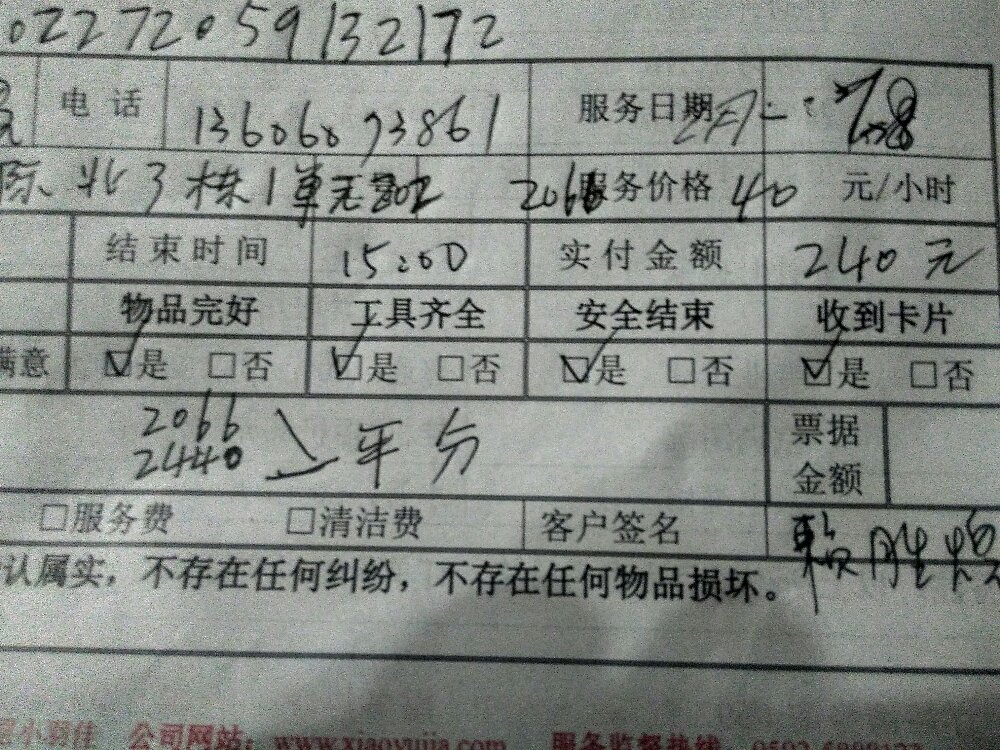 02272059132172
电话 13606093861 服务日期
北3栋1单元202 2066 服务价格 40 元/小时
结束时间 15:00 实付金额 240元
物品完好 工具齐全 安全结束 收到卡片
满意 ☑是 □否 ☑是 □否 ☑是 □否 ☑是 □否
2066 票据
2440 平分 金额
□服务费 □清洁费 客户签名
认属实，不存在任何纠纷，不存在任何物品损坏。
小羽佳 公司网站：www.xiaoyujia.com 服务监督热线